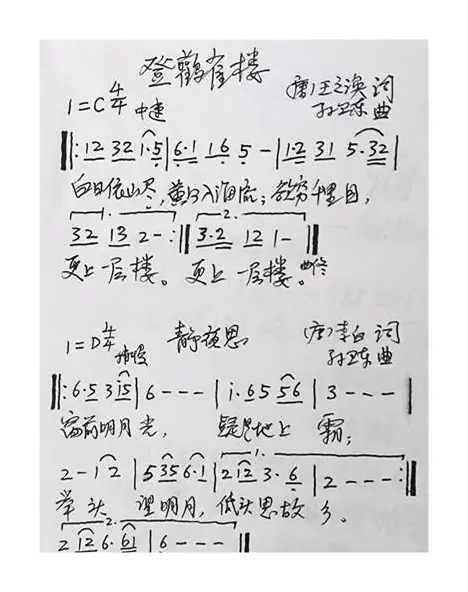 登鸛雀楼
1=C 4/4 中速 唐)王之涣 词
孙卫东 曲
‖: 12 32 1·5 | 6·1 16 5 - | 1·2 31 5·32 |
白日依山尽,黄河入海流;欲穷千里目,
1.
2.
32 13 2 - :‖ 3·2 12 1 - ‖
更上一层楼。更上一层楼。曲终
1=D 4/4 稍慢 静夜思 (唐)李白 词
孙卫东 曲
‖: 6·5 3 i5 | 6 - - - | i·65 56 | 3 - - - |
窗前明月光, 疑是地上 霜;
1.
2 - 1 2 | 5 35 6·1 | 2 12 3·6 | 2 - - - :‖
举头 望明月,低头思故 乡。
2.
2 12 6·61 | 6 - - - ‖